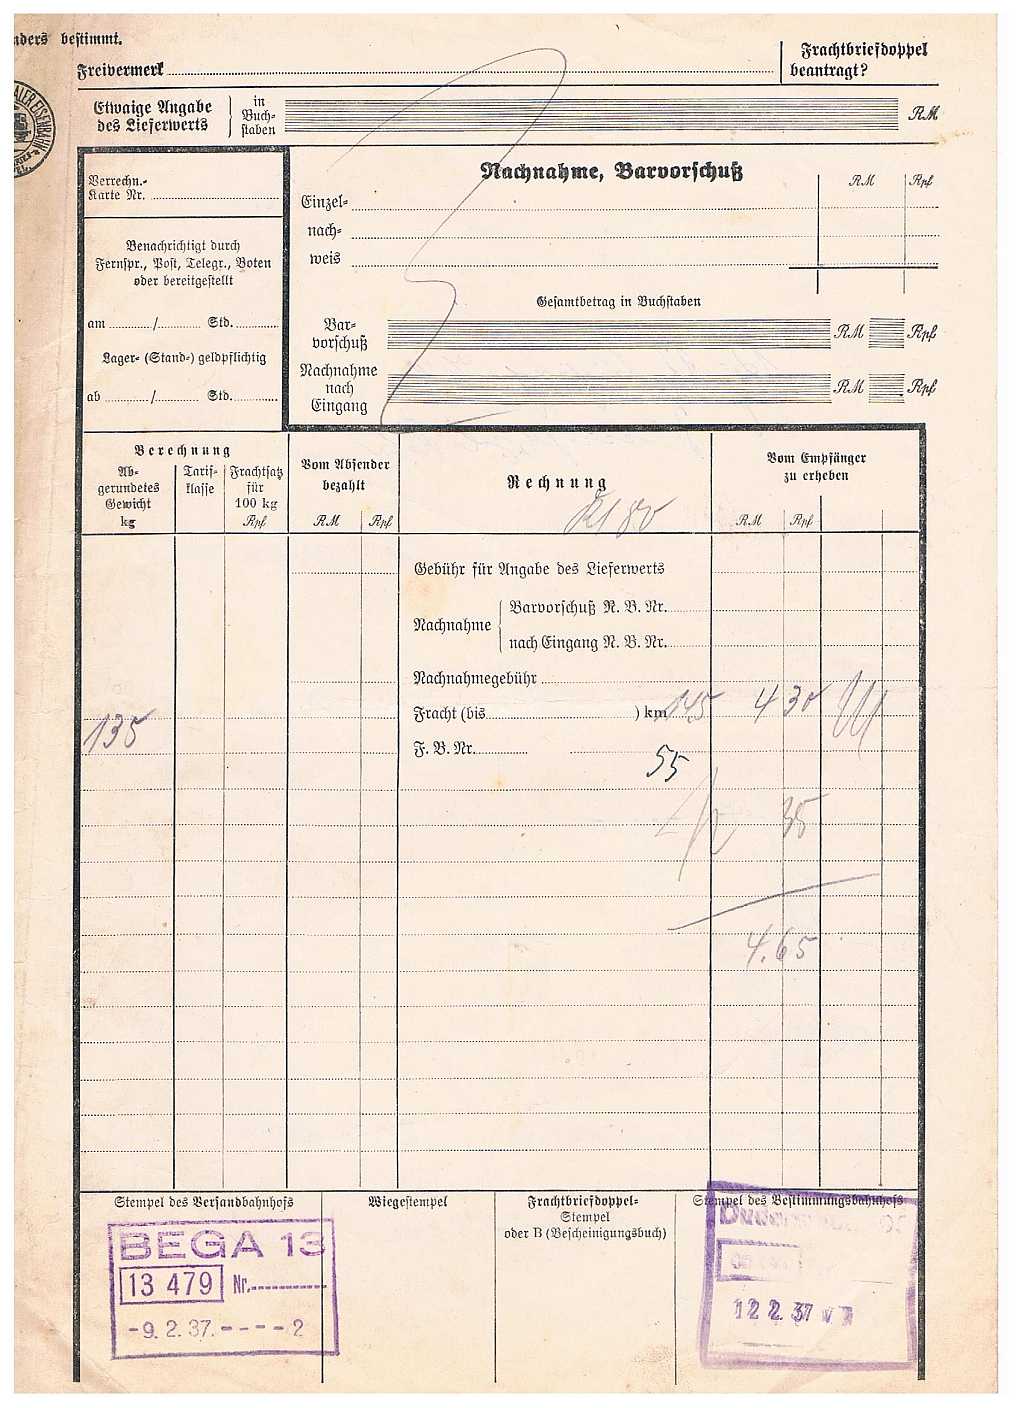 nders bestimmt.
Freivermerk
Frachtbriefdoppel
beantragt?
Etwaige Angabe
des Lieferwerts
in
Buch-
staben
RM
Verrechn.-
Karte Nr.
Nachnahme, Barvorschuß
RM Rpf
Einzel-
nach-
weis
Benachrichtigt durch
Fernspr., Post, Telegr., Boten
oder bereitgestellt
am / Std.
Lager- (Stand-) geldpflichtig
ab / Std.
Gesamtbetrag in Buchstaben
Bar-
vorschuß
RM Rpf
Nachnahme
nach
Eingang
RM Rpf
Berechnung
Ab-
gerundetes
Gewicht
kg
Tarif-
klasse
Frachtsatz
für
100 kg
Rpf
Vom Absender
bezahlt
RM Rpf
Rechnung
Vom Empfänger
zu erheben
RM Rpf
Gebühr für Angabe des Lieferwerts
Nachnahme
Barvorschuß N. B. Nr.
nach Eingang N. B. Nr.
Nachnahmegebühr
Fracht (bis ) km 145 4 30
135
F. B. Nr.
55
35
4.65
Stempel des Versandbahnhofs
Wiegestempel
Frachtbriefdoppel-
Stempel
oder B (Bescheinigungsbuch)
Stempel des Bestimmungsbahnhofs
BEGA 13
13 479 Nr.
-9. 2. 37.----2
12 2. 37